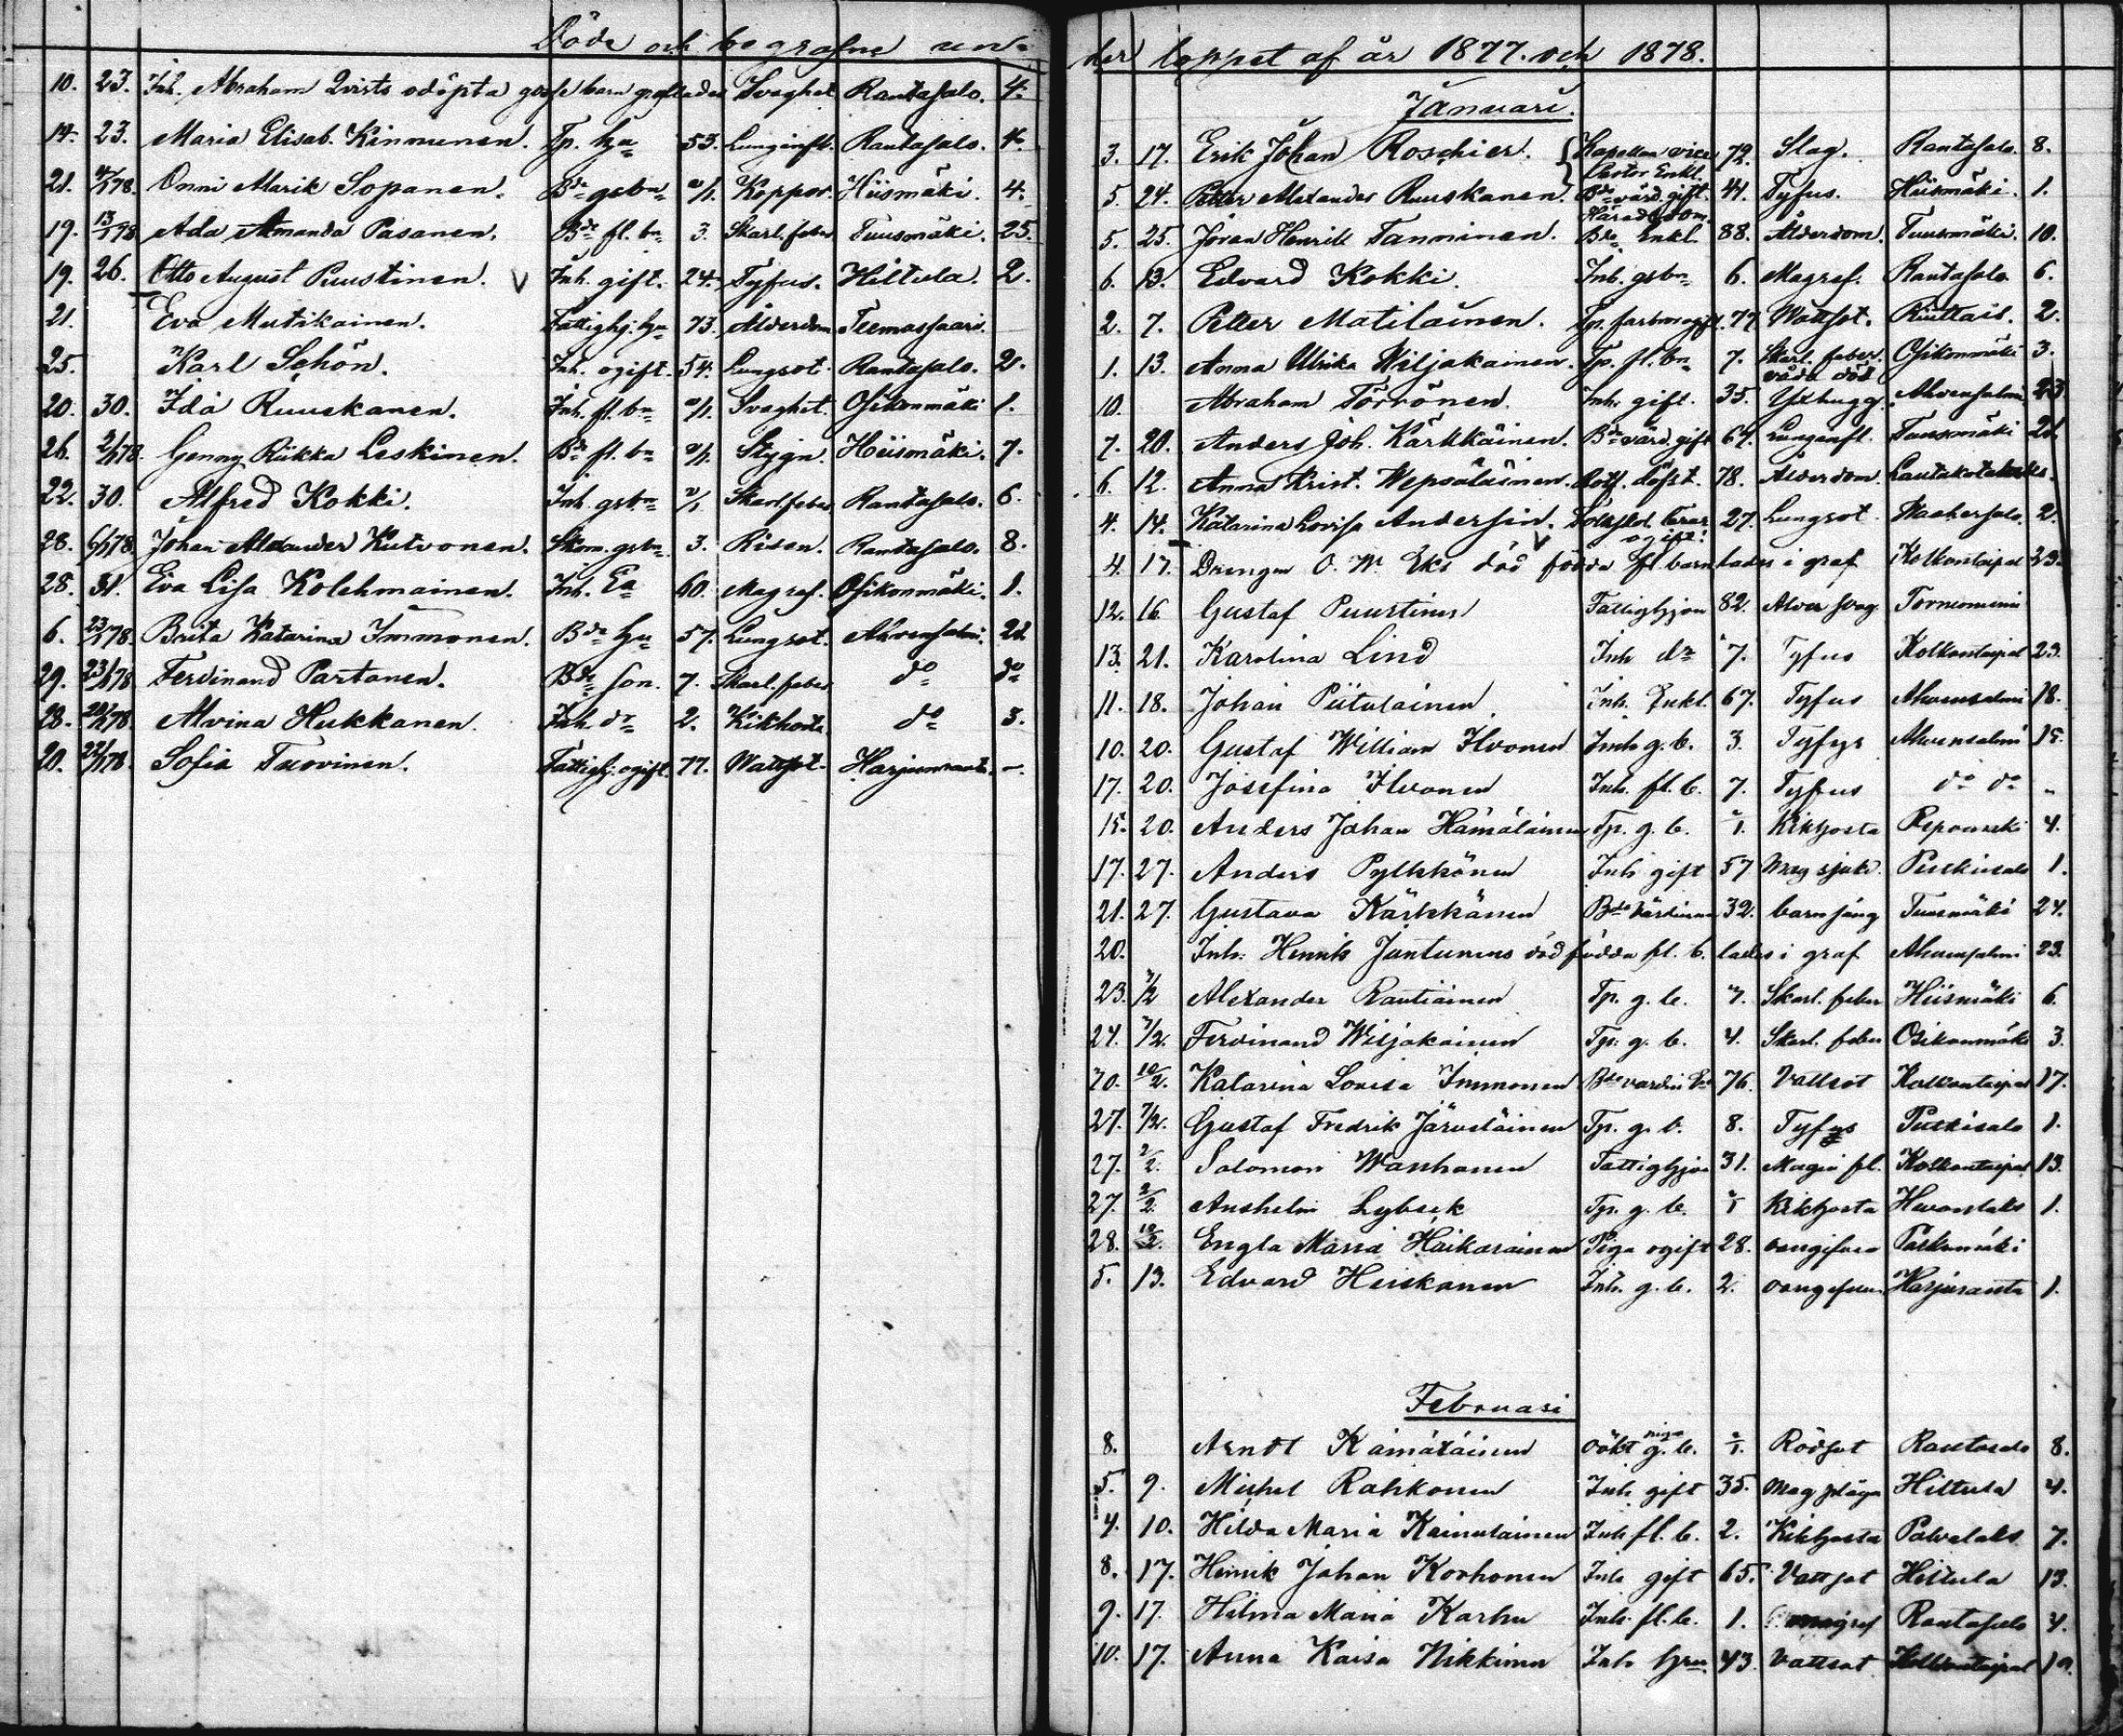 Döde och begrafne un-
10. 23. Inh. Abraham Qvists odöpta gosse barn graflades Svaghet Rantasalo. 4.
14. 23. Maria Elisab. Kinnunen. Tp. hu 53. Lunginfl. Rantasalo. 4.
21. Onni Alarik Sopanen. Bde gsbn Koppor. Hiismäki. 4.
19. 13/1 78 Ada Amanda Pasanen. Bde fl. bn 3. Skarl. feber Tuusmäki. 25.
19. 26. Otto August Puustinen. V Inh. gift. 24. Tyfus. Hiltula. 2.
21. Eva Mutikainen. Fattighj. hu 73. Ålderdom Teemassaari.
25. Karl Schön. Inh. ogift. 54. Lungsot. Rantasalo. 2.
20. 30. Ida Ruuskanen. Inh. fl. bn Svaghet. Osikonmäki 1.
26. 2/1 78. Genny Riikka Leskinen. Bde fl. bn Stygn. Hiismäki. 7.
22. 30. Alfred Kokki. Inh. gsbn Skarl. feber Rantasalo. 6.
28. 6/1 78 Johan Alexander Kutvonen. Skom. gsbn 3. Risen. Rantasalo. 8.
28. 31. Eva Lisa Kolehmainen. Inh. Ea 60. Magref. Osikonmäki. 1.
6. 23/1 78. Brita Katarina Immonen. Bde hu 57. Lungsot. Ahvensalmi. 21.
29. 23/1 78 Ferdinand Partanen. Bde son. 7. Skarl. feber do do
28. 20/1 78 Alvina Hukkanen. Inh. dr 2. Kikhosta do 3.
20. 22/1 78. Sofia Tuovinen. Fattighj. ogift. 77. Wattsot. Harjuranta. -.
der loppet af år 1877. och 1878.
Januari.
3. 17. Erik Johan Roschier. Kapellan vice Pastor Enkl. 72. Slag. Rantasalo. 8.
5. 24. Petter Alexander Ruuskanen. Bde värd. gift. 41. Tyfus. Hiismäki. 1.
5. 25. Jöran Henrik Tanninen. Häradsdom. Bde Enkl. 88. Ålderdom. Tuusmäki. 10.
6. 13. Edvard Kokki. Inh. gsbn 6. Magref. Rantasalo. 6.
2. 7. Petter Matilainen. Tp. farbror ogift. 77. Wattsot. 2.
1. 13. Anna Ulrika Wiljakainen. Tp. fl. bn 7. Skarl. feber. Osikonmäki 3.
10. Abraham Törrönen. Inh. gift. 35. våda död Yxhugg. Ahvensalmi. 23
7. 20. Anders Joh. Kärkkäinen. Bde värd. gift 67. Lunginfl. Tuusmäki 21.
6. 12. Anna Krist. Wepsäläinen. 78. Ålderdom.
4. 14. Katarina Lovisa Andersin. Folkskol. lärar. ogift. 27. Lungsot. 2.
4. 17. Drengen O. W. Eks död födda fl. barn lades i graf Kolkontaipal 23.
12. 16 Gustaf Puustinen Fattighjon 82. Ålder svag. Torniomemi
13. 21. Karolina Lind Inh dr 7. Tyfus Kolkontaipal 23.
11. 18. Johan Piitulainen Inh. Enkl. 67. Tyfus Ahvensalmi 18.
10. 20. Gustaf William Ilvonen Inh g. b. 3. Tyfys Ahvensalmi 15.
17. 20. Josefina Ilvonen Inh. fl. b. 7. Tyfus do do "
15. 20. Anders Johan Hämäläinen Tp. g. b. Kikhosta Reponuski 4.
17. 27. Anders Pylkkönen Inh gift 57 Mag sjukd. Putkisalo 1.
21. 27. Gustava Kärkkänen Bde värdinna 32. barnsäng Tuusmäki 24.
20. Inh. Henrik Jantunens död födda fl. b. lades i graf Ahvensalmi 23.
23. Alexander Rautiainen Tp. g. b. 7. Skarl. feber Hiismäki 6.
24. 7/2. Ferdinand Wiljakainen Tp. g. b. 4. Skarl. feber Osikonmäki 3.
20. 10/2. Katarina Lovisa Immonen Bde värdin 76. Vattsot Kolkontaipal 17.
27. 7/2. Gustaf Fredrik Järveläinen Tp. g. b. 8. Tyfys Putkisalo 1.
27. 2/2. Salomon Wanhanen Fattighjon 31. Kolkontaipal 13.
27. 2/2. Anshelm Lybeck Tp. g. b. Kikhosta 1.
28. 10/2. Engla Maria Häikäräinen Piga ogift 28. oangifven Paskumäki
5. 13. Edvard Heiskanen Inh. g. b. 2. oangifven Harjuranta 1.
Februari
8. Arndt Kämäräinen g. b. Rödsot Rantasalo 8.
5. 9. Mickel Rahkonen Inh gift 35. Mag plåga Hiltula 4.
4. 10. Hilda Maria Kainulainen Inh fl. b. 2. Kikhosta Palvalaks 7.
8. 17. Henrik Johan Korhonen Inh gift 65. Vattsot Hiltula 13.
9. 17. Hilma Maria Karhu Inh. fl. b. 1. magref Rantasalo 4.
10. 17. Anna Kaisa Nikkinen Inh hru 43. Vattsot Kolkontaipal 19.